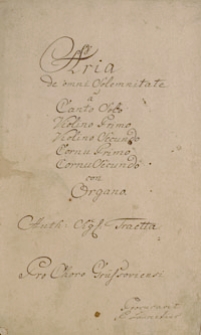 Aria
de omni Solemnitate
a
Canto Solo
Violino Primo
Violino Secundo
Cornu Primo
Cornu Secundo
con
Organo
Auth: Sigl: Traetta
Pro Choro